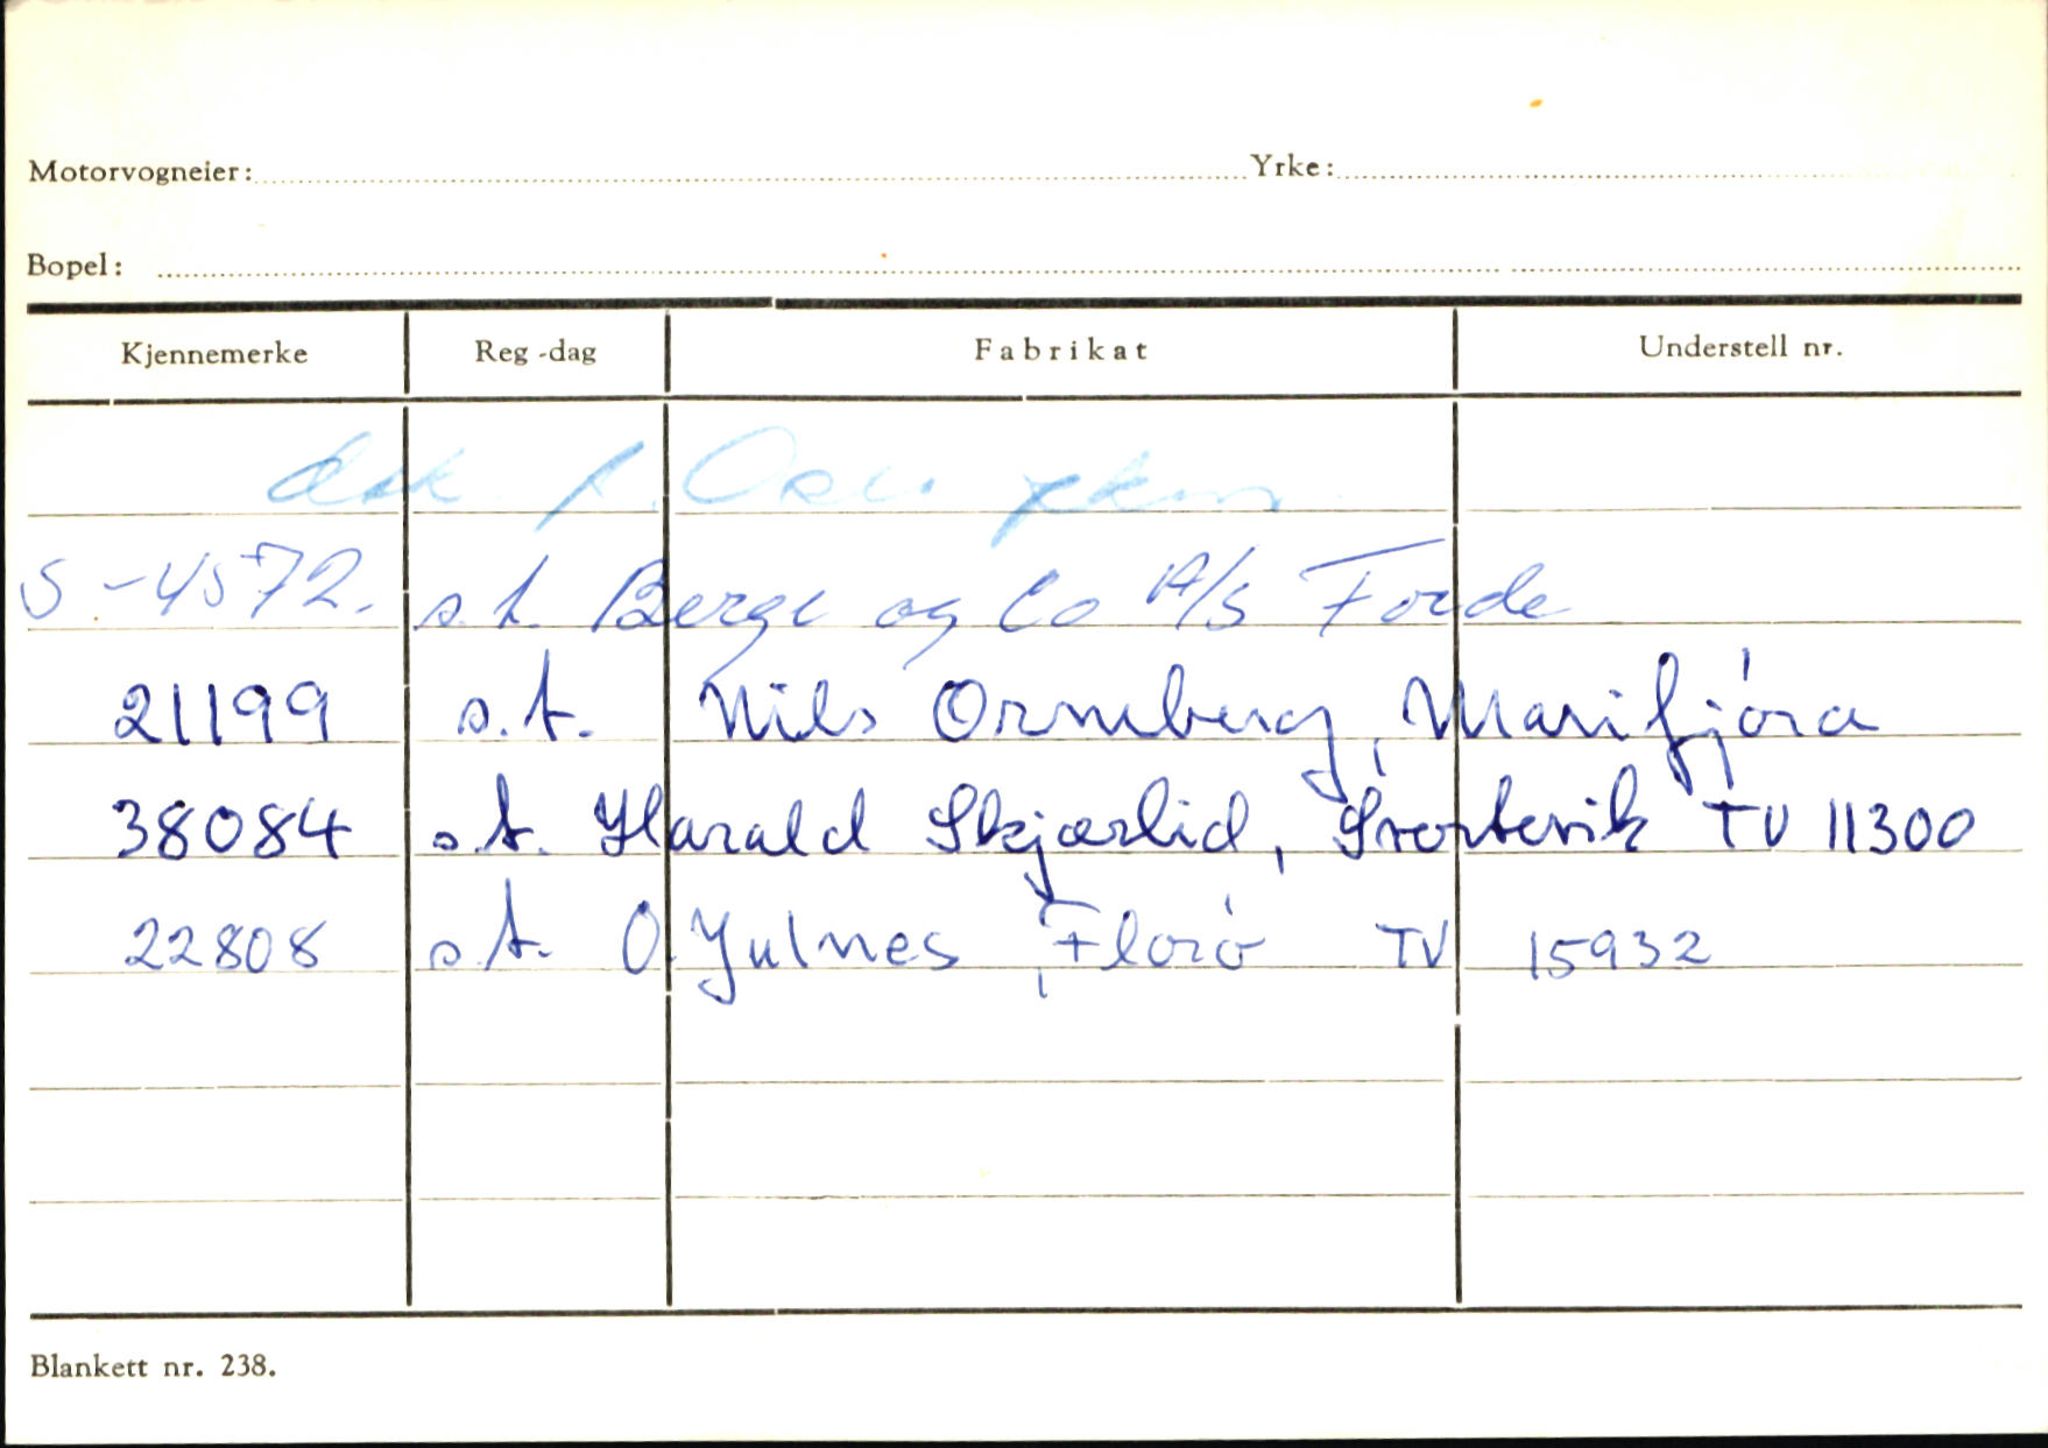 Motorvogneier: Yrke:
Bopel:
Kjennemerke Reg-dag Fabrikat Understell nr.
S-4572. s.t. Berge og Co A/S Førde
21199 s.t. Nils Ormberg, Marifjøra
38084 s.t. Harald Skjærlid, Svortevik TV 11300
22808 s.t. O. Julnes, Florø TV 15932
Blankett nr. 238.